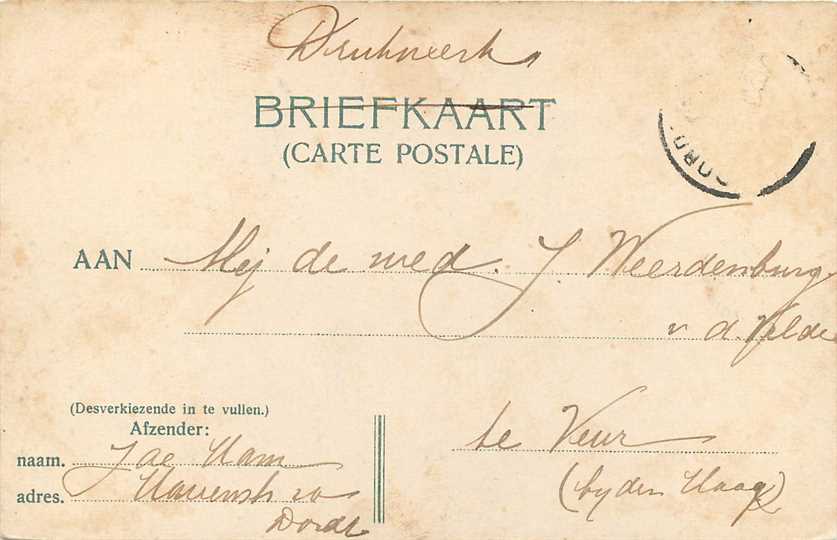 Drukwerk
BRIEFKAART
(CARTE POSTALE)
DORD
AAN Mej de wed. J. Weerdenburg
v d Velde
(Desverkiezende in te vullen.)
Afzender:
naam. Jac Ham
adres.
Dordt
te Veur
(by den Haag)